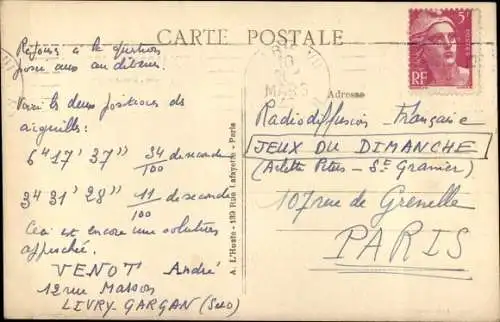 CARTE POSTALE
Réponse à la question
posée aux auditeurs.
Voici les deux positions des
aiguilles:
6h 17' 37" 34/100 de seconde
3h 31' 28" 11/100 de seconde
Ceci est encore une solution
approchée.
VENOT André
12 rue Masson
LIVRY-GARGAN (S&O)
A. L'Hoste - 139 Rue Lafayette - Paris
MARS
5F
RF
Adresse
Radiodiffusion Française
JEUX DU DIMANCHE
(Arlette Peters - St Granier)
107 rue de Grenelle
PARIS